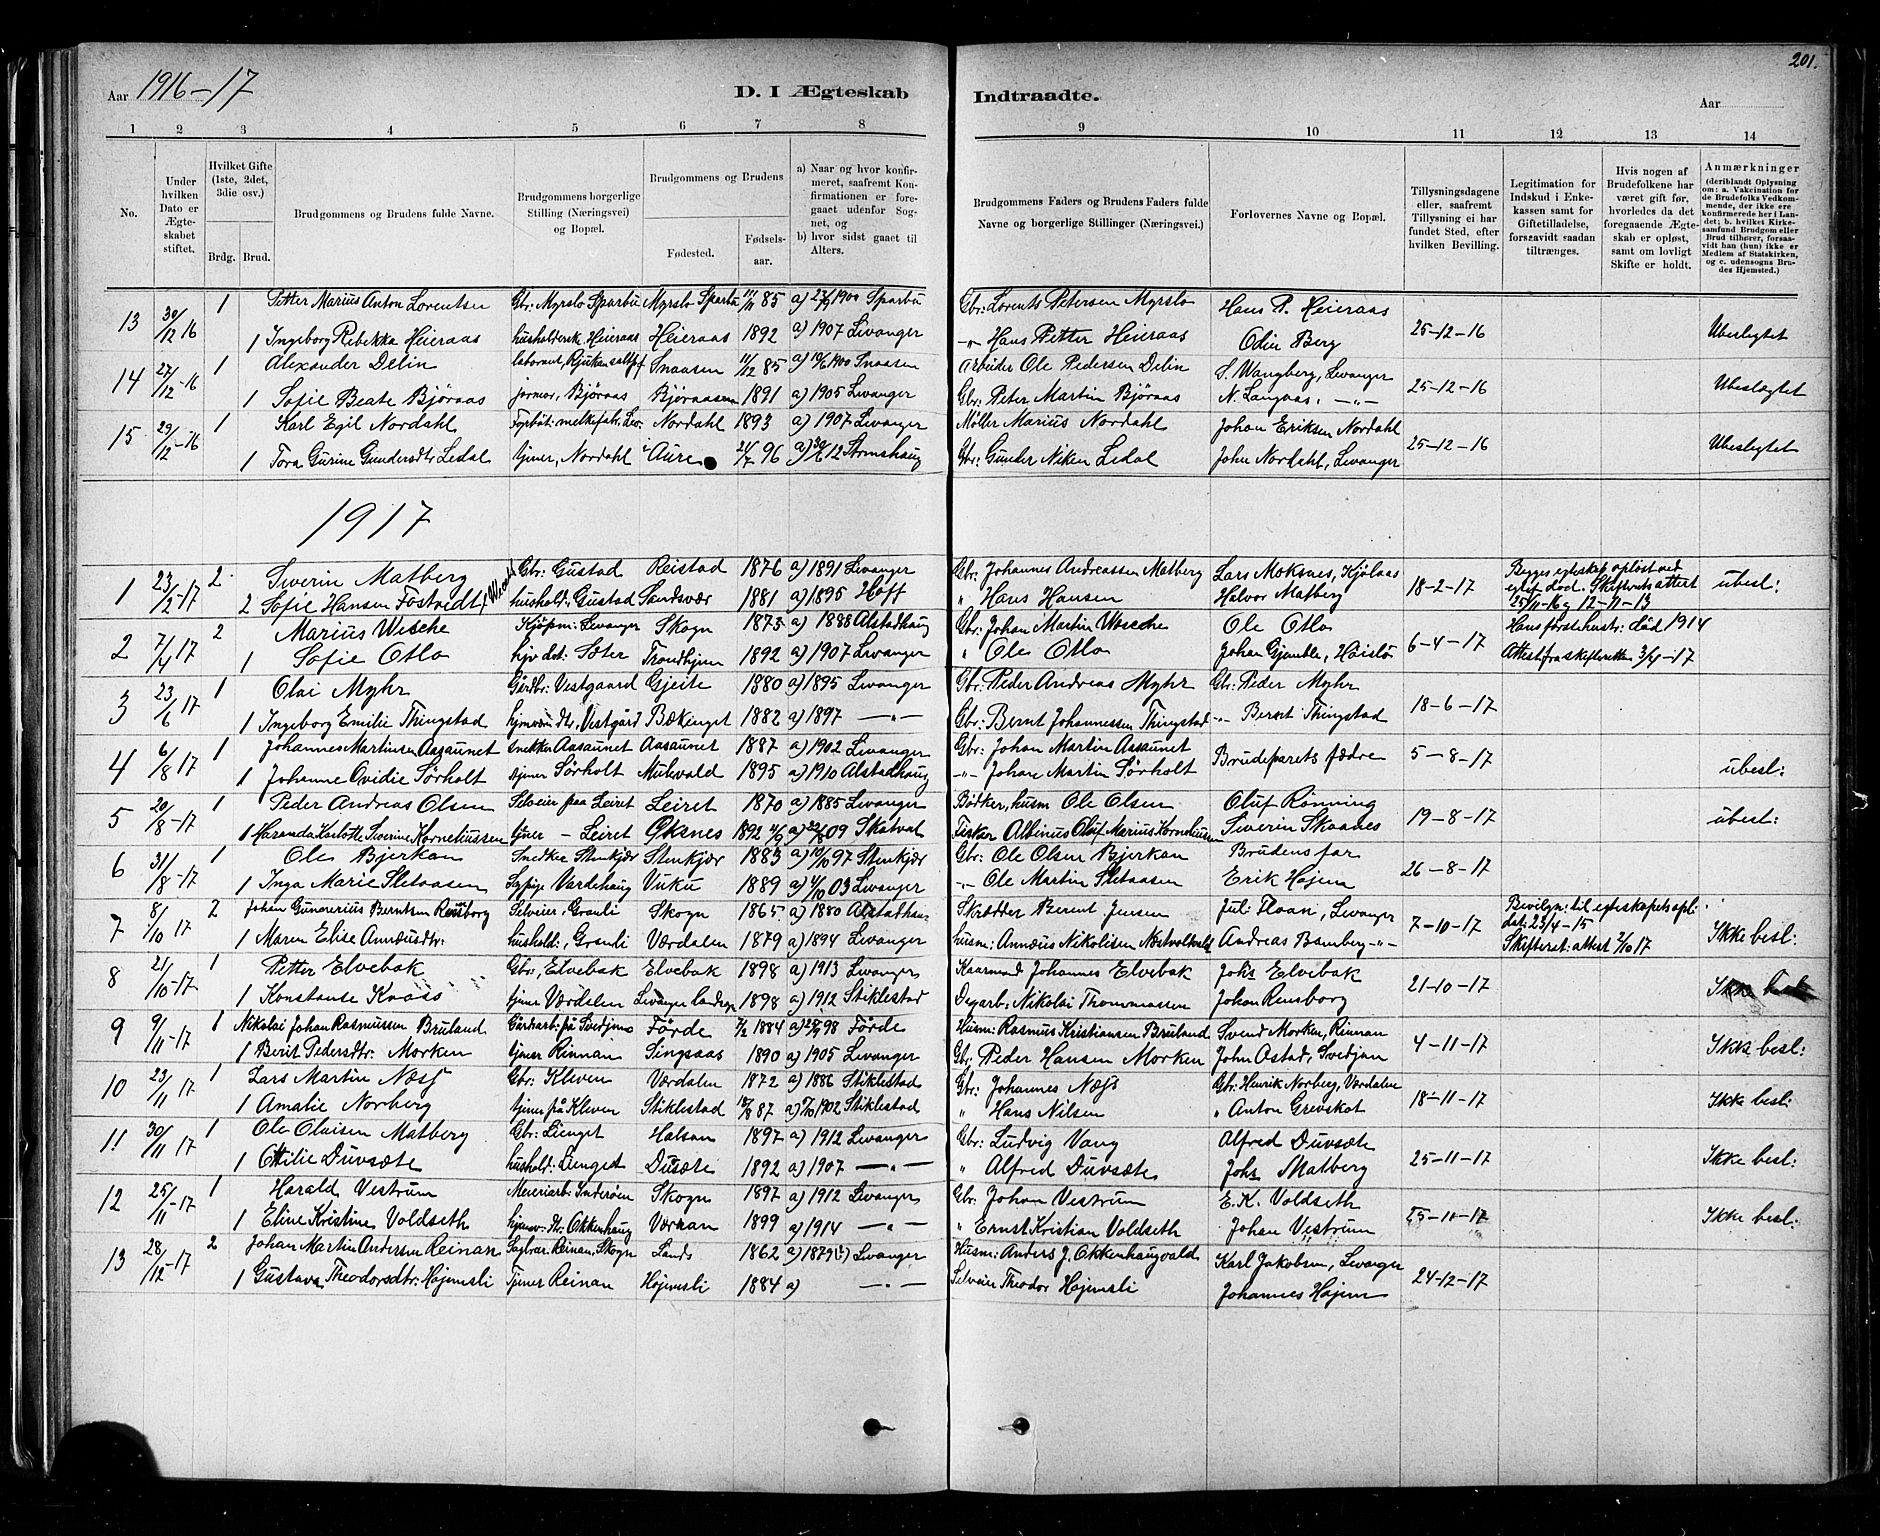 201.
Aar 1916-17
D. I Ægteskab Indtraadte.
Aar
1 2 3 4 5 6 7 8 9 10 11 12 13 14
No.
Under hvilken Dato er Ægteskabet stiftet.
Hvilket Gifte (1ste, 2det, 3die osv.)
Brdg. Brud.
Brudgommens og Brudens fulde Navne.
Brudgommens borgerlige Stilling (Næringsvei) og Bopæl.
Brudgommens og Brudens
Fødested.
Fødselsaar.
a) Naar og hvor konfirmeret, saafremt Konfirmationen er foregaaet udenfor Sognet, og
b) hvor sidst gaaet til Alters.
Brudgommens Faders og Brudens Faders fulde Navne og borgerlige Stillinger (Næringsvei.)
Forlovernes Navne og Bopæl.
Tillysningsdagene eller, saafremt Tillysning ei har fundet Sted, efter hvilken Bevilling.
Legitimation for Indskud i Enkekassen samt for Giftetilladelse, forsaavidt saadan tiltrænges.
Hvis nogen af Brudefolkene har været gift før, hvorledes da det foregaaende Ægteskab er opløst, samt om lovligt Skifte er holdt.
Anmærkninger (deriblandt Oplysning om: a. Vakcination for de Brudefolks Vedkommende, der ikke ere konfirmerede her i Landet; b. hvilket Kirkesamfund Brudgom eller Brud tilhører, forsaavidt han (hun) ikke er Medlem af Statskirken, og c. udensogns Brudes Hjemsted.)
13 30/12 16 1 Petter Marius Anton Lorentsen Gbr: Myrslo Sparbu Myrslo Sparbu 85 a) 1900 Sparbu Gbr: Lorents Petersen Myrslo Hans P. Heieraas 25-12-16 Ubeslegtet
1 Ingeborg Rebekka Heieraas Heieraas Heieraas 1892 a) 1907 Levanger -"- Hans Petter Heieraas Odin Berg
14 27/12-16 1 Alexander Delin laborant, Rjukan Snaasen 11/12 85 a) 1900 Snaasen Arbeider Ole Pedersen Delin S. Wangberg, Levanger 25-12-16 Ubeslægtet
1 Sofie Beate Bjøraas jormor, Bjøraas Bjøraasen 1891 a) 1905 Levanger Gbr: Peter Martin Bjøraas N. Langaas, -"-
15 29/12-16 1 Karl Egil Nordahl Nordahl 1893 a) 1907 Levanger Møller Marius Nordahl Johan Eriksen Nordahl 25-12-16 Ubeslegtet
1 Tora Gurine Gundersdtr Ledal tjener, Nordahl i Aure 96 a) 12 Gbr: Gunder Niken Ledal John Nordahl, Levanger
1917
1 23/2-17 2 Severin Matberg Gbr: Gustad Reistad 1876 a) 1891 Levanger Gbr: Johannes Andreassen Matberg Lars Moksnes, Kjølaas 18-2-17 Begges egteskap opløst ved egtef. død. Skifterets attest ubesl:
2 Sofie Hansen Fostvedt hushold: Gustad Sandsvær 1881 a) 1895 Hoff " Hans Hansen Halvor Matberg 25/11-16 og 12-11-13
2 7/4 17 2 Marius Wesche Kjøpm: Levanger Skogn 1875 a) 1888 Alstadhaug Gbr: Johan Martin Wesche Ole Otlo 6-4-17 Hans første hustr: død 1914
1 Sofie Otlo hjv dt: Sæter Trondhjem 1892 a) 1907 Levanger " Ole Otlo Johan Gjemble, Høislo Attest fra skifteretten 3/4-17
3 23/6 17 1 Olai Myhr Gårdbr: Vestgaard Gjeite 1880 a) 1895 Levanger Gbr: Peder Andreas Myhr Gbr: Peder Myhr 18-6-17
1 Ingeborg Emilie Thingstad Vestgård Bækenget 1882 a) 1897 -"- Gbr: Bernt Johannessen Thingstad -"- Bernt Thingstad
4 6/8 17 1 Johannes Martinsen Aasaunet snekker Aasaunet Aasaunet 1887 a) 1902 Levanger Gbr: Johan Martin Aasaunet Brudeparets fædre 5-8-17 ubesl:
1 Johanne Ovidie Sørholt tjener Sørholt 1895 a) 1910 Alstadhaug -"- Johan Martin Sørholt
5 20/8-17 1 Peder Andreas Olsen Selveier paa Leiret Leiret 1870 a) 1885 Levanger Bødker, husm Ole Olsen Oluf Rønning 19-8-17 ubesl:
1 Haranda Karlotte Severine Korneliussen tjener - Leiret Øksnes 1892 a) 09 Skatval Fisker Albinus Oluf Marius Korneliussen Severin Skaanes
6 31/8-17 1 Ole Bjerkan Snedker Stenkjær Stenkjær 1883 a) 97 Stenkjær Gbr: Ole Olsen Bjerkan Brudens far 26-8-17
1 Inga Marie Sletaasen Sypige Vardehaug Vuku 1889 a) 4/10 03 Levanger -"- Ole Martin Sletaasen Erik Højem
7 8/10 17 2 Johan Gunnerius Berntsen Rensborg Selveier, Granli Skogn 1865 a) 1880 Alstadhau Skrædder Bernt Jensen Jul: Floan, Levanger 7-10-17 Bevilgn: til egteskapets opl: dat: 23/4-15 Ikke besl:
1 Maren Elise Annæusdtr: hushold:, Granli Værdalen 1879 a) 1894 Levanger husm: Annæus Nikolisen Andreas Bamberg -"- Skifteret: attest 2/10 17
8 21/10-17 1 Petter Elvebak Gbr, Elvebak Elvebak 1898 a) 1913 Levanger Kaarmand Johannes Elvebak Johs Elvebak 21-10-17 Ikke besl
1 Konstanse Knass tjener Værdalen Levanger landsogn 1898 a) 1912 Stiklestad Dagarb: Nikolai Thommassen Johan Rensborg
9 9/11-17 1 Nikolai Johan Rasmussen Bruland Gårdarb: på Svedjan Førde 7/2 1884 a) 98 Førde Husm: Rasmus Kristiansen Bruland Svend Morken, Rinnan 4-11-17 Ikke besl:
1 Berit Pedersdtr: Morken tjener Rinnan Singsaas 1890 a) 1905 Levanger Gbr, Peder Hansen Morken John Østad, Svedjan
10 23/11 17 1 Lars Martin Næss Gbr: Kleven Værdalen 1872 a) 1886 Stiklestad Gbr: Johannes Næss Gbr: Henrik Norberg, Værdalen 18-11-17 Ikke besl:
1 Amalie Norberg tjener på Kleven Stiklestad 87 a) 1902 Stiklestad " Hans Nilsen " Anton Grevskot
11 30/11 17 1 Ole Olaisen Matberg Gbr: Lienget Halsan 1897 a) 1912 Levanger Gbr: Ludvig Vang Alfred Duvsæte 25-11-17 Ikke besl:
1 Ottilie Duvsæte hushold: Lienget Dusæte 1892 a) 1907 -"- " Alfred Duvsæte Johs Matberg
12 25/11-17 1 Harald Vestrum Meieriarb: Inderøen Skogn 1897 a) 1912 Levanger Gbr. Johan Vestrum E. K. Voldseth 25-11-17 Ikke besl:
1 Eline Kristine Voldseth Okkenhaug Værran 1899 a) 1914 -"- " Ernst Kristian Voldseth Johan Vestrum
13 28/12-17 2 Johan Martin Andersen Reinan Reinan, Skogn Lands 1862 a) 1879 Levanger Husm: Anders J. Okkenhaugvald Karl Jakobsen, Levanger 24-12-17
1 Gustava Theodorsdtr: Højemsli Tjener Reinan Højemsli 1884 a) -"- Selveier Theodor Højemsli Johannes Højem